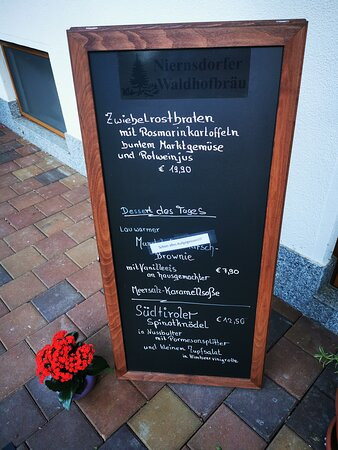 Niernsdorfer
Waldhofbräu
Zwiebelrostbraten
mit Rosmarinkartoffeln
buntem Marktgemüse
und Rotweinjus
€ 19,90
Dessert des Tages
Lauwarmer
Brownie
mit Vanilleeis € 7,90
an hausgemachter
Meersalz-Karamellsoße
Südtiroler € 12,50
Spinatknödel
in Nussbutter
mit Parmesansplitter
und kleinem Zupfsalat
in Himbeervinigrette